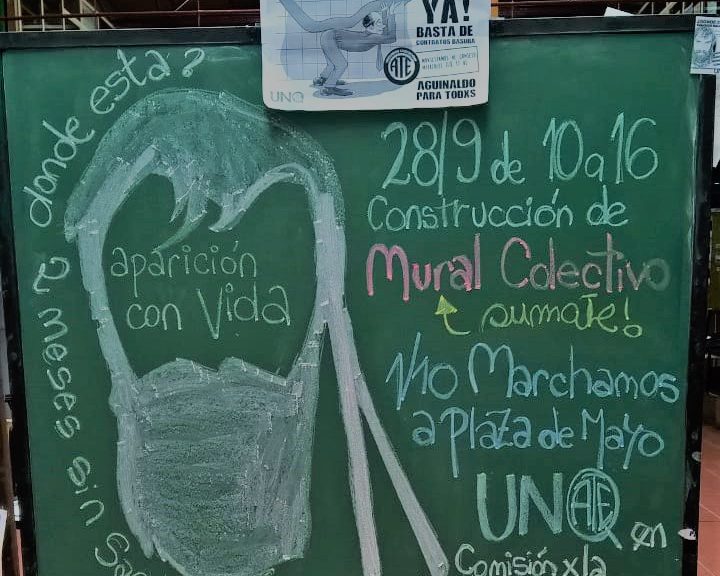 YA!
BASTA DE
CONTRATOS BASURA
ATE
AGUINALDO
PARA TODXS
UNQ
donde esta?
2 meses sin
aparición
con vida
28/9 de 10 a 16
Construcción de
Mural Colectivo
sumate!
1/10 Marchamos
a Plaza de Mayo
UNQ
ATE
en
Comisión x la